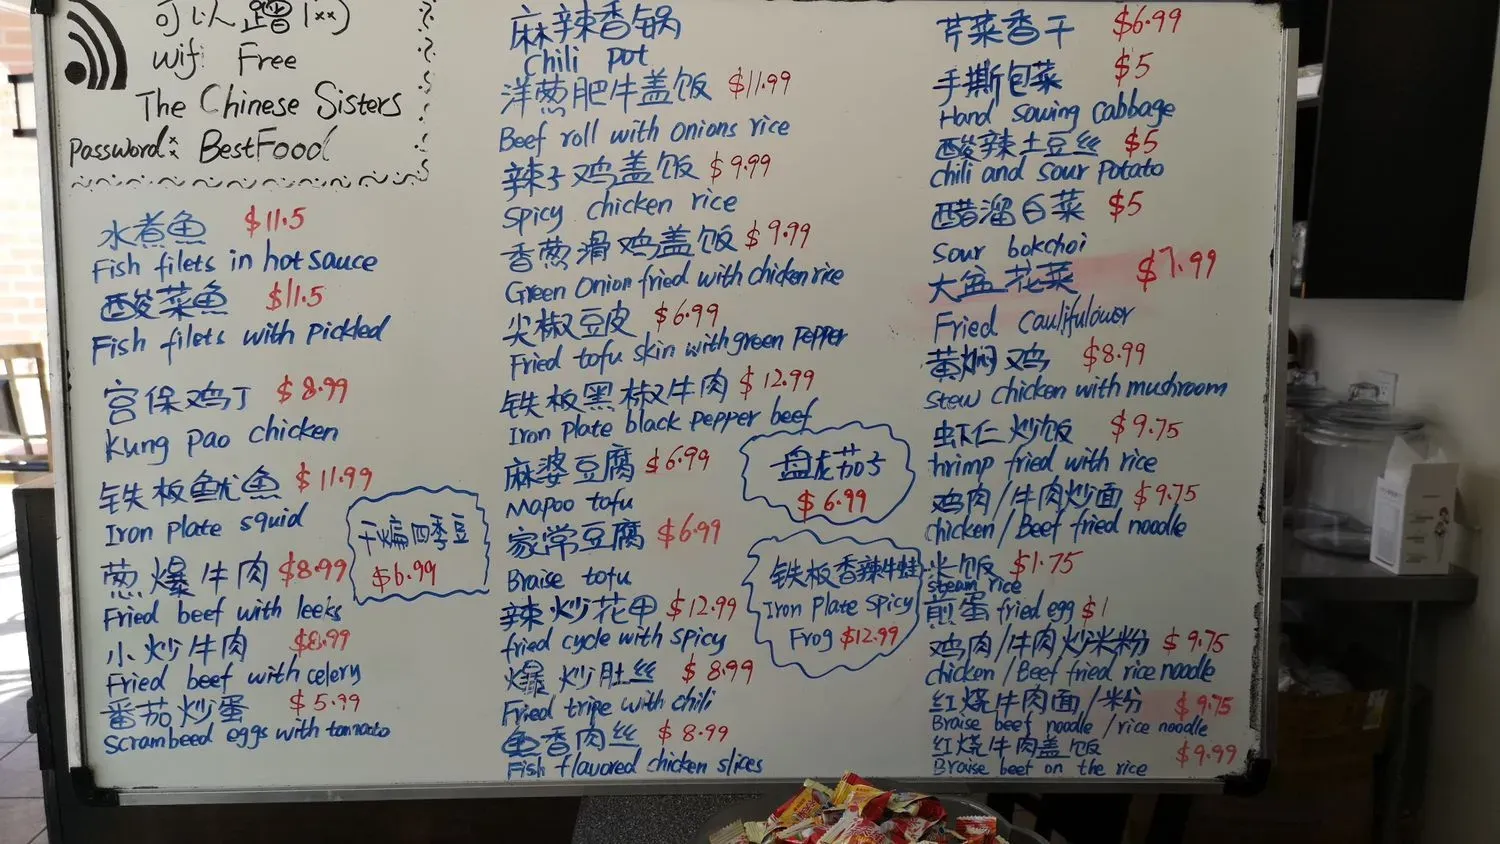 可以蹭
Wifi Free
The Chinese Sisters
Password: BestFood
水煮鱼 $11.5
Fish filets in hot sauce
酸菜鱼 $11.5
Fish filets with pickled
宫保鸡丁 $8.99
Kung pao chicken
铁板鱿鱼 $11.99
Iron plate squid
干煸四季豆
$6.99
葱爆牛肉 $8.99
Fried beef with leeks
小炒牛肉 $8.99
Fried beef with celery
番茄炒蛋 $5.99
Scrambeed eggs with tomato
麻辣香锅
Chili pot
洋葱肥牛盖饭 $11.99
Beef roll with onions rice
辣子鸡盖饭 $9.99
Spicy chicken rice
香葱滑鸡盖饭 $9.99
Green onion fried with chicken rice
尖椒豆皮 $6.99
Fried tofu skin with green pepper
铁板黑椒牛肉 $12.99
Iron plate black pepper beef
麻婆豆腐 $6.99
Mapoo tofu
家常豆腐 $6.99
Braise tofu
辣炒花甲 $12.99
fried cycle with spicy
爆炒肚丝 $8.99
Fried tripe with chili
鱼香肉丝 $8.99
Fish flavored chicken slices
盘龙茄子
$6.99
铁板香辣牛蛙
Iron plate Spicy
Frog $12.99
芹菜香干 $6.99
手撕包菜 $5
Hand sowing cabbage
酸辣土豆丝 $5
Chili and sour potato
醋溜白菜 $5
Sour bokchoi
大盆花菜 $7.99
Fried caulifulower
黄焖鸡 $8.99
Stew chicken with mushroom
虾仁炒饭 $9.75
hrimp fried with rice
鸡肉/牛肉炒面 $9.75
chicken/Beef fried noodle
米饭 $1.75
steam rice
煎蛋 fried egg $1
鸡肉/牛肉炒米粉 $9.75
chicken/Beef fried rice noodle
红烧牛肉面/粉 $9.75
Braise beef noodle/rice noodle
红烧牛肉盖饭 $9.99
Braise beef on the rice